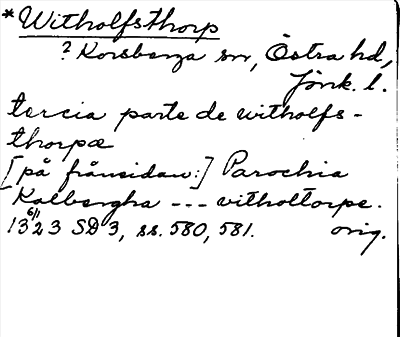 *Witholfsthorp
? Korsberga sn, Östra hd,
Jönk. l.
tercia parte de witholfs-
thorpæ
[på frånsidan:] Parochia
Kalbergha --- vitholtorpe.
13 6/1 23 SD 3, ss. 580, 581. orig.